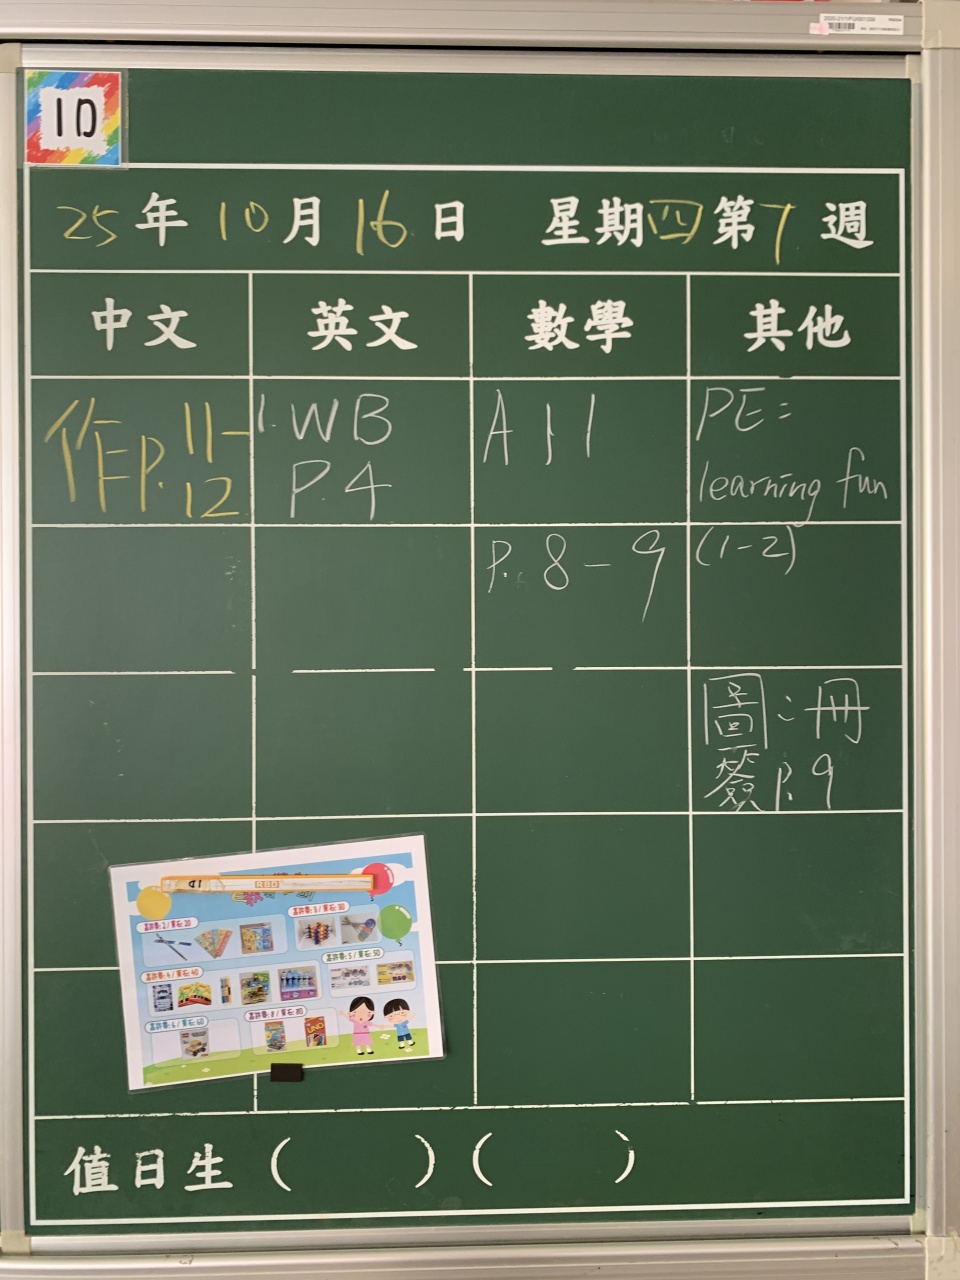 1D
25年10月16日 星期四第7週
中文 英文 數學 其他
作P.11-
12
1. WB
P.4
A 1 1
P. 8-9
PE:
learning fun
(1-2)
圖:冊
簽P.9
RBD
UNO
值日生( )( )